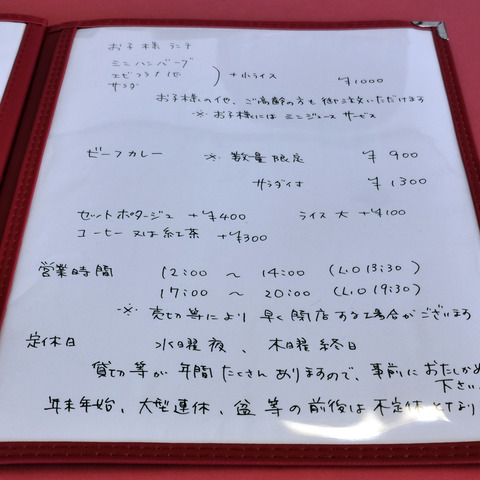 お子様ランチ
ミニハンバーグ
エビフライ他
サラダ
+小ライス
¥1000
お子様の他、ご高齢の方も御注文いただけます
※お子様にはミニジュースサービス
ビーフカレー ※数量限定 ¥900
サラダ付 ¥1300
セットポタージュ +¥400 ライス大 +¥100
コーヒー又は紅茶 +¥300
営業時間 12:00 ～ 14:00 (L.O 13:30)
17:00 ～ 20:00 (L.O 19:30)
※売切等により早く閉店する場合がございます
定休日 水曜夜、木曜終日
貸切等が年間たくさんありますので、事前におたしかめ
下さい
年末年始、大型連休、盆等の前後は不定休となり